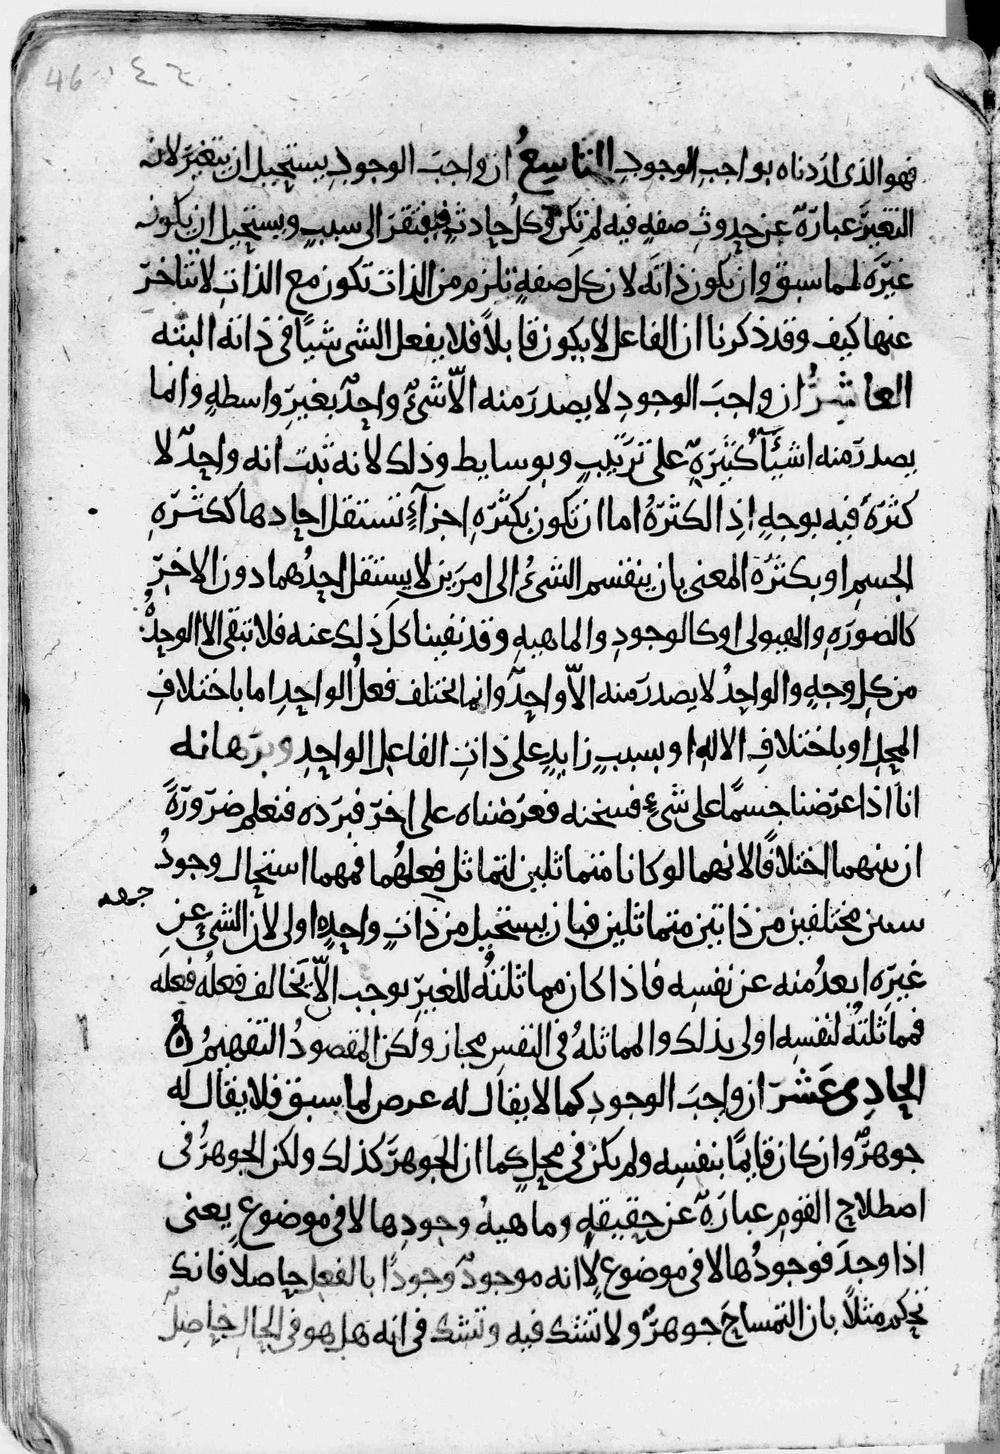 46 ٤٦
فهو الذى اردناه بواجب الوجودِ التاسعُ ان واجبَ الوجودِ يستحيل ان يتغير لان
التغيّرَ عبارة عن حدوثِ صفهٍ فيه لم تكن وكل حادثٍ فيفتقر الى سببٍ ويستحيل ان يكون
غيرَه لما سبق وان يكون ذاته لان كل صفهٍ تلزم من الذات تكون مع الذاتِ لا تتاخر
عنها كيف وقد ذكرنا ان الفاعل لا يكون قابلاً فلا يفعل الشى شيًا فى ذاته البته
العاشرُ ان واجبَ الوجودِ لا يصدر منه الّا شىءٌ واحدٌ بغير واسطهٍ وانما
يصدر منه اشيآءُ كثيرةٌ على ترتيبٍ وبوسايط وذلك لانه ثبت انه واحدٌ لا
كثرةَ فيه بوجهٍ اذِ الكثرةُ اما ان تكون بكثرةِ اجزآءٍ تستقل احادها ككثرةِ
الجسمِ او بكثرةِ المعنى بان ينقسم الشىءُ الى امرين لا يستقل احدُهما دون الاخر
كالصورةِ والهيولى او كالوجودِ والماهيهِ وقد نفينا كل ذلك عنه فلا تبقى الا الوحدةُ
من كل وجهٍ والواحدُ لا يصدر منه الّا واحدٌ وانما تختلف فعلُ الواحدِ اما باختلافِ
المحلِ او باختلافِ الالهِ او بسببٍ زايدٍ على ذاتِ الفاعل الواحدِ وبرهانه
انا اذا عرضنا جسمًا على شىءٍ فسخنه فعرضناه على اخر فبرده فنعلم ضرورةً
ان بينهما اختلافًا لانهما لو كانا متماثلين لتماثل فعلهُما فمهما استحال وجودُ
سىىن مختلفين من ذاتين متماثلين فبان يستحيل من ذاتٍ واحدهٍ اولى لان الشىءَ عن
جهه
غيرِه ابعدُ منه عن نفسِه فاذا كان مماثلتُه للغيرِ يوجب الّا يخالف فعلُه فعلَه
فمماثلتُه لنفسِه اولى بذلك والمماثلهُ فى النفس مجاز ولكن المقصودُ التفهيمُ ۵
الحادى عَشَرَ ان واجبَ الوجودِ كما لا يقال له عرض لما سبق فلا يقال له
جوهرٌ وان كان قايمًا بنفسِه ولم يكن فى محلٍ كما ان الجوهرَ كذلك ولكن الجوهرُ فى
اصطلاحِ القومِ عبارةٌ عن حقيقهٍ وماهيهٍ وجودها لا فى موضوعٍ يعنى
اذا وجدَ فوجودُها لا فى موضوعٍ لا انه موجودٌ وجودًا بالفعل حاصلا فانك
تحكم مثلاً بان التمساحَ جوهرٌ ولا تشك فيه وتشك فى انه هل هو فى الحال حاصلٌ